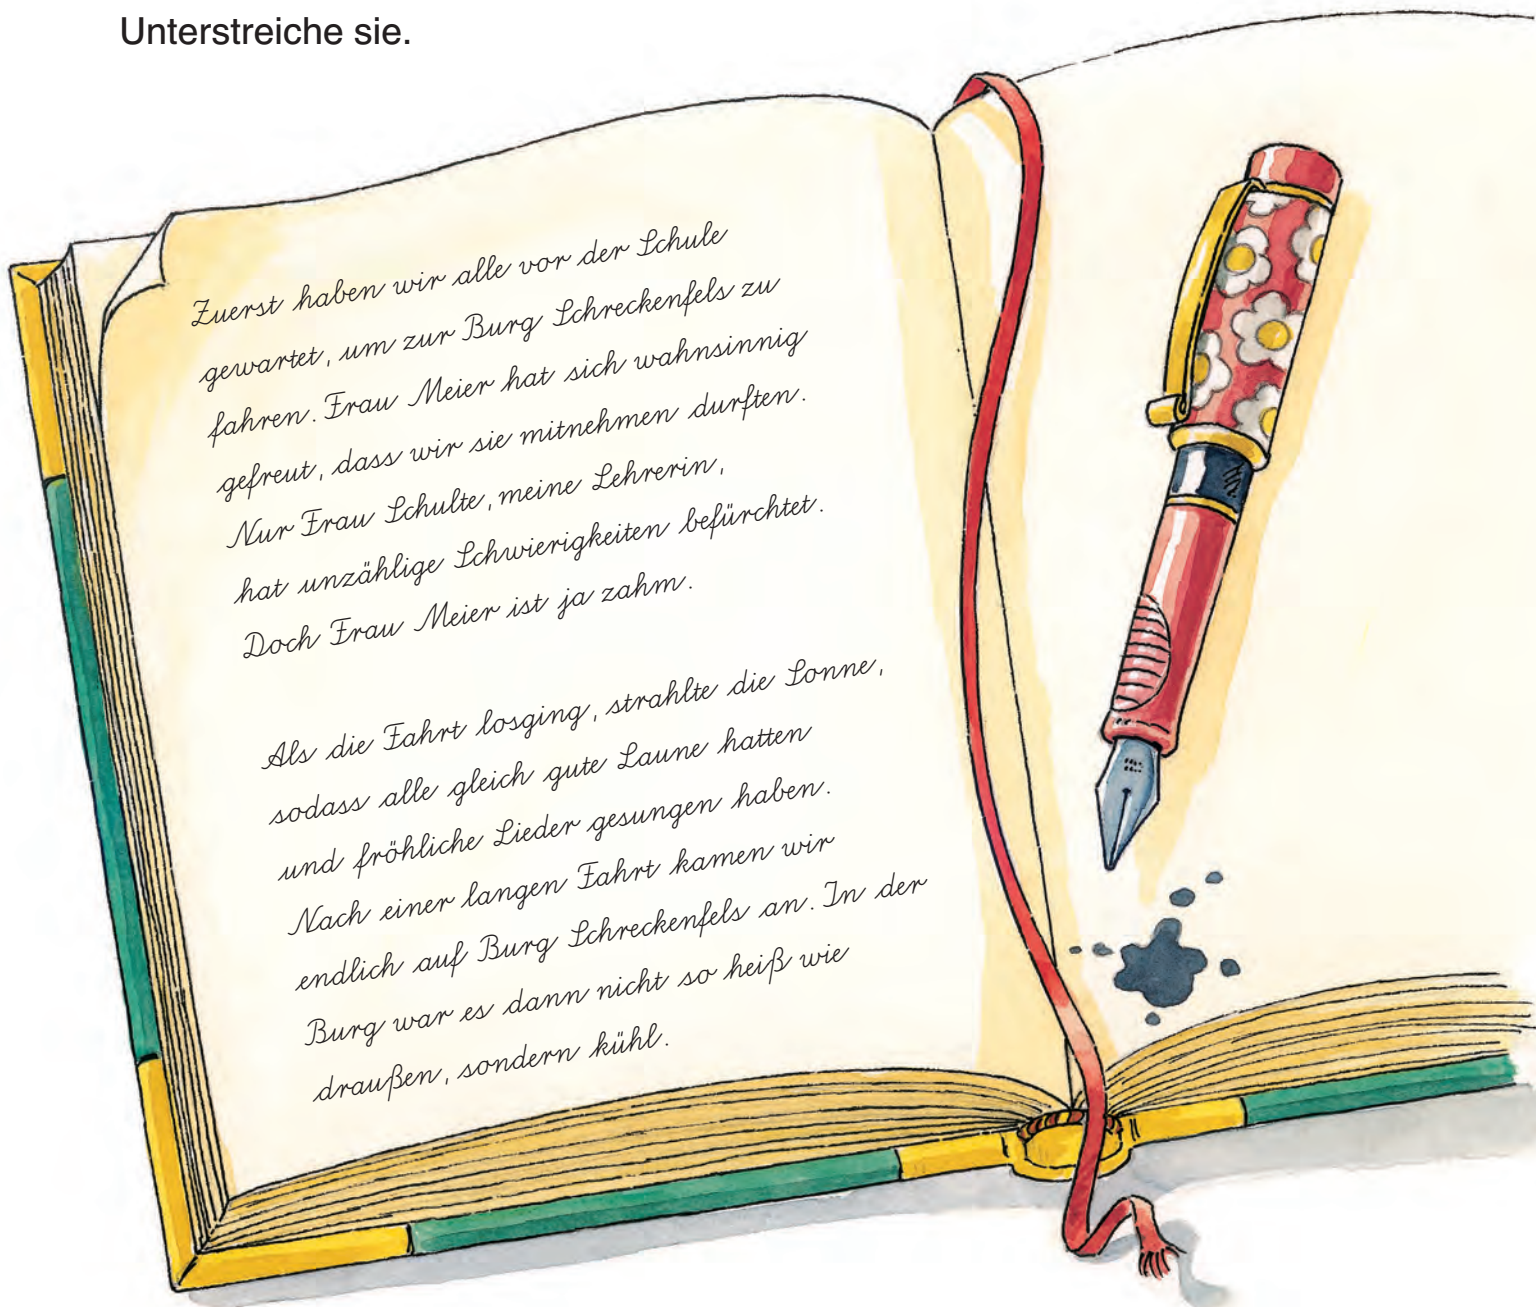 Unterstreiche sie.
Zuerst haben wir alle vor der Schule
gewartet, um zur Burg Schreckenfels zu
fahren. Frau Meier hat sich wahnsinnig
gefreut, dass wir sie mitnehmen durften.
Nur Frau Schulte, meine Lehrerin,
hat unzählige Schwierigkeiten befürchtet.
Doch Frau Meier ist ja zahm.
Als die Fahrt losging, strahlte die Sonne,
sodass alle gleich gute Laune hatten
und fröhliche Lieder gesungen haben.
Nach einer langen Fahrt kamen wir
endlich auf Burg Schreckenfels an. In der
Burg war es dann nicht so heiß wie
draußen, sondern kühl.